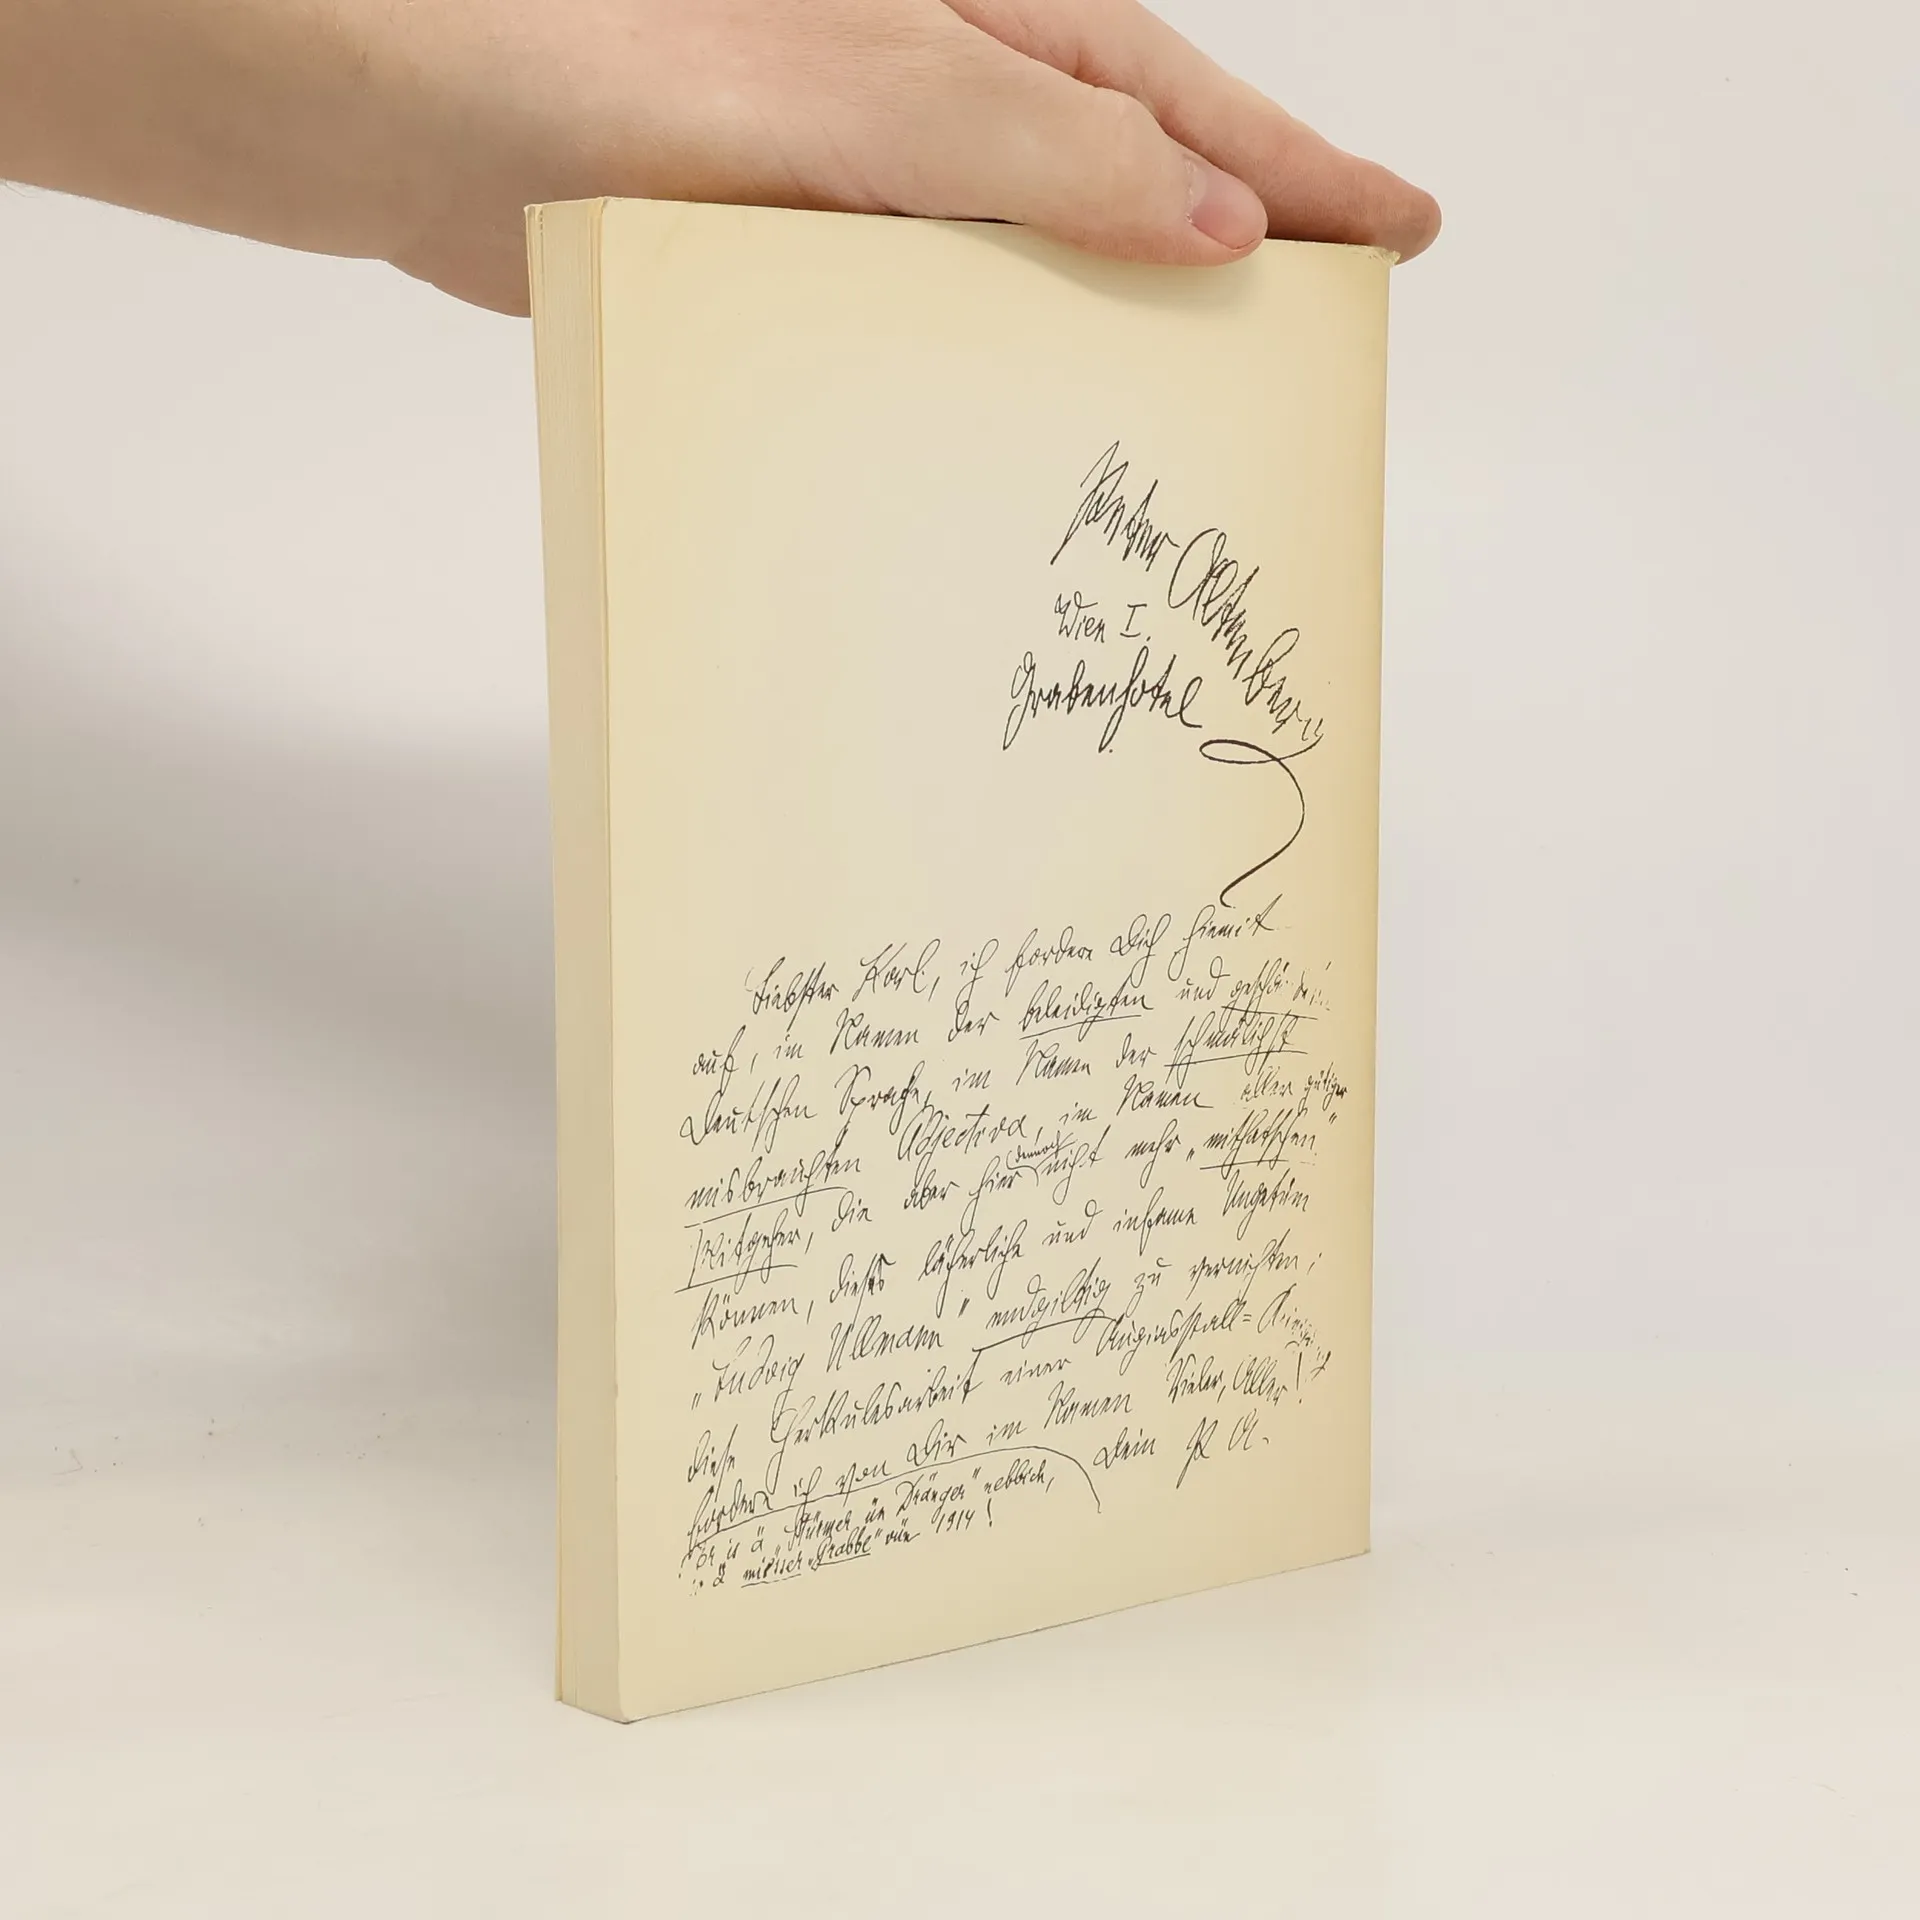 Peter Altenberg
Wien I.
Grabenhotel
Liebster Karl, ich fordere Dich hiemit
auf, im Namen der beleidigten und
Deutschen Sprache, im Namen der schmählichst
misbrauchten Adjectiva, im Namen aller gütiger
Mitgeher, die aber hier dennoch nicht mehr „mithatschen"
können, dieses lächerliche und infame Ungetüm
„Ludwig Ullmann" endgiltig zu vernichten;
diese Herkulesarbeit einer Augiasstall=
fordere ich von Dir im Namen Vieler, Aller!
Dein P A.
Er is ä „Stürmer ün Dränger" nebbich,
is ä miesser „Grabbe" vün 1914!